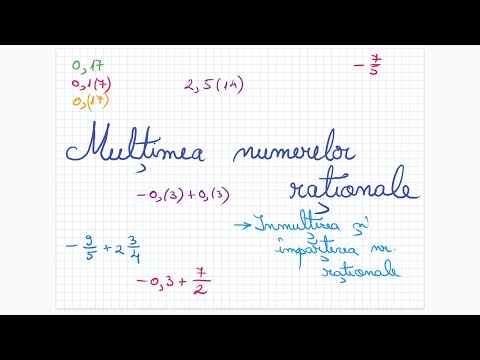 0,17
0,1(7)
0,(17)
2,5(14)
-7/5
Mulțimea numerelor
raționale
-0,(3)+0,(3)
→ Inmulțirea și
împărțirea nr.
raționale
-9/5+2 3/4
-0,3+7/2